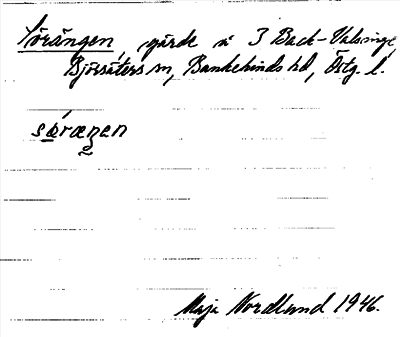 Sörängen, gärde å 3 Back-Valsinge,
Björsäters sn, Bankekinds hd, Östg. l.
særæŋen
Maja Nordlund 1946.